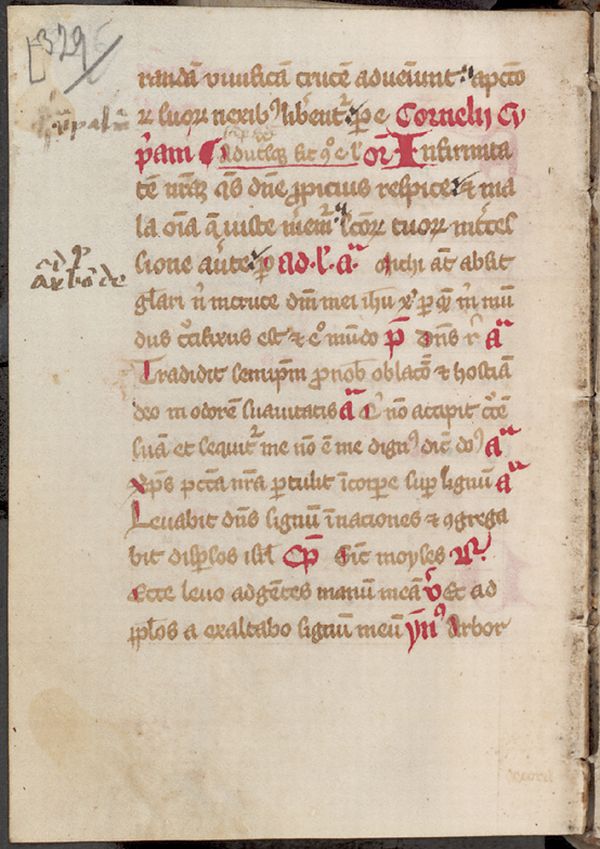 [329
randā viuificā crucē adueiunt apctō
ꝝ suoꝝ nexibꝰ liberentᷣ p e Cornelij Cy
p̄ani
oīō Infirmita
tē nr̄aꝫ qs̄ dn̄e ꝓpicius respice ⁊ ma
la oīa q̄ iuste meremᷣ scōꝝ tuoꝝ int̄ces
sione au̾te p̄ ad. l'. aᷓ michi at̄ absit
glāri n̄ in cruce dn̄i mei ihu xp̄ per q̄ m̄ mū
dus c̄cifixus est ⁊ e° mūdo p̄ dn̄s r̄ aᷓ
Tradidit semip̄m ꝓ nob̄ oblacō ⁊ hostiā
deo in odorē suauitatis aᷓ Q' nō accipit c̄cē
suā et sequitᷣ me nō ē me dignꝰ dic̄ do' aᷓ
Xp̄s pctā nr̄a ꝑtulit ī corꝑe suꝑ lignū aᷓ
Leuabit dn̄s signū ī naciones ⁊ ꝯgrega
bit disꝑsos isrl̄ Cp̄ Sic̄ moyses ꝶ
Ecce leuo ad gētes manū meā v̄ Et ad
ppl̄os a exaltabo signū meū ymꝰ Arbor